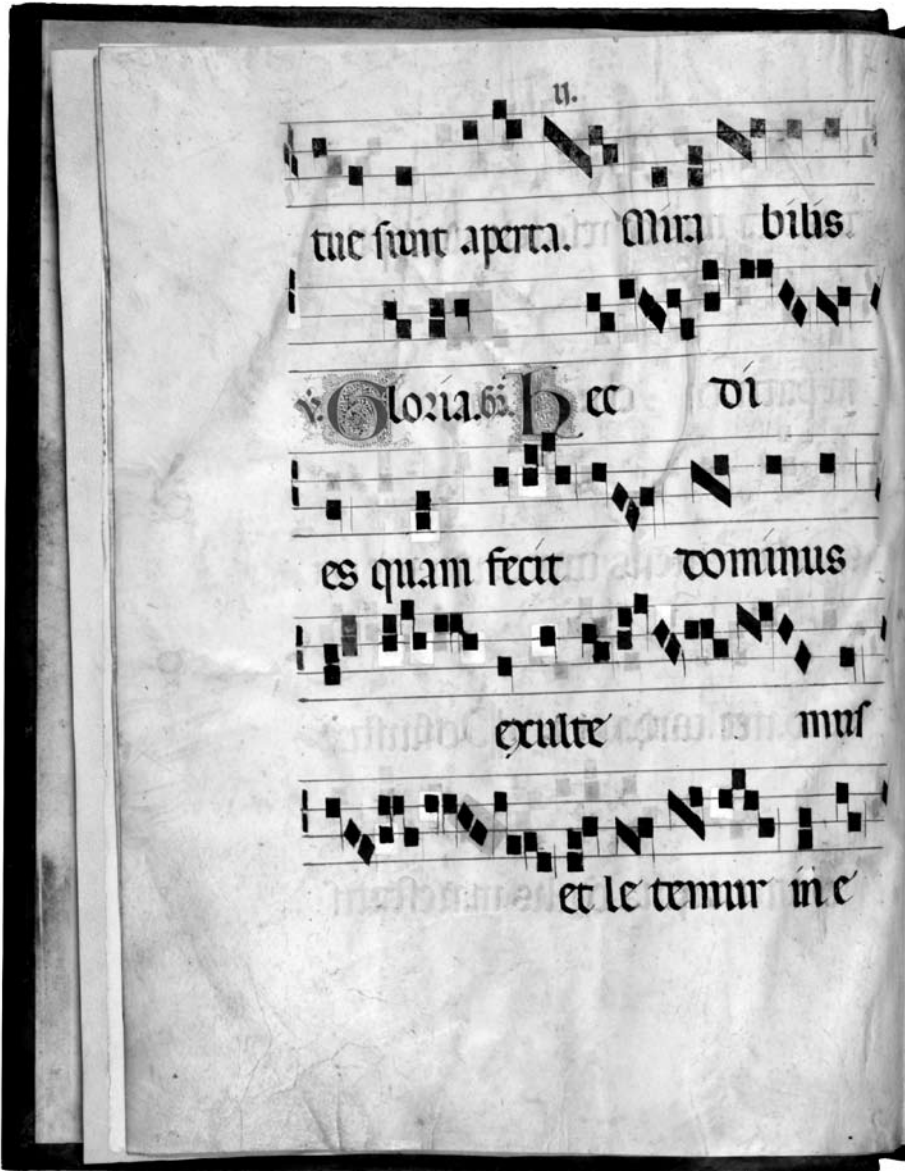 ij.
tue sunt aperta. Mira bilis.
℣. Gloria. Gr. Hec di
es quam fecit dominus
exulte mus
et le temur in e